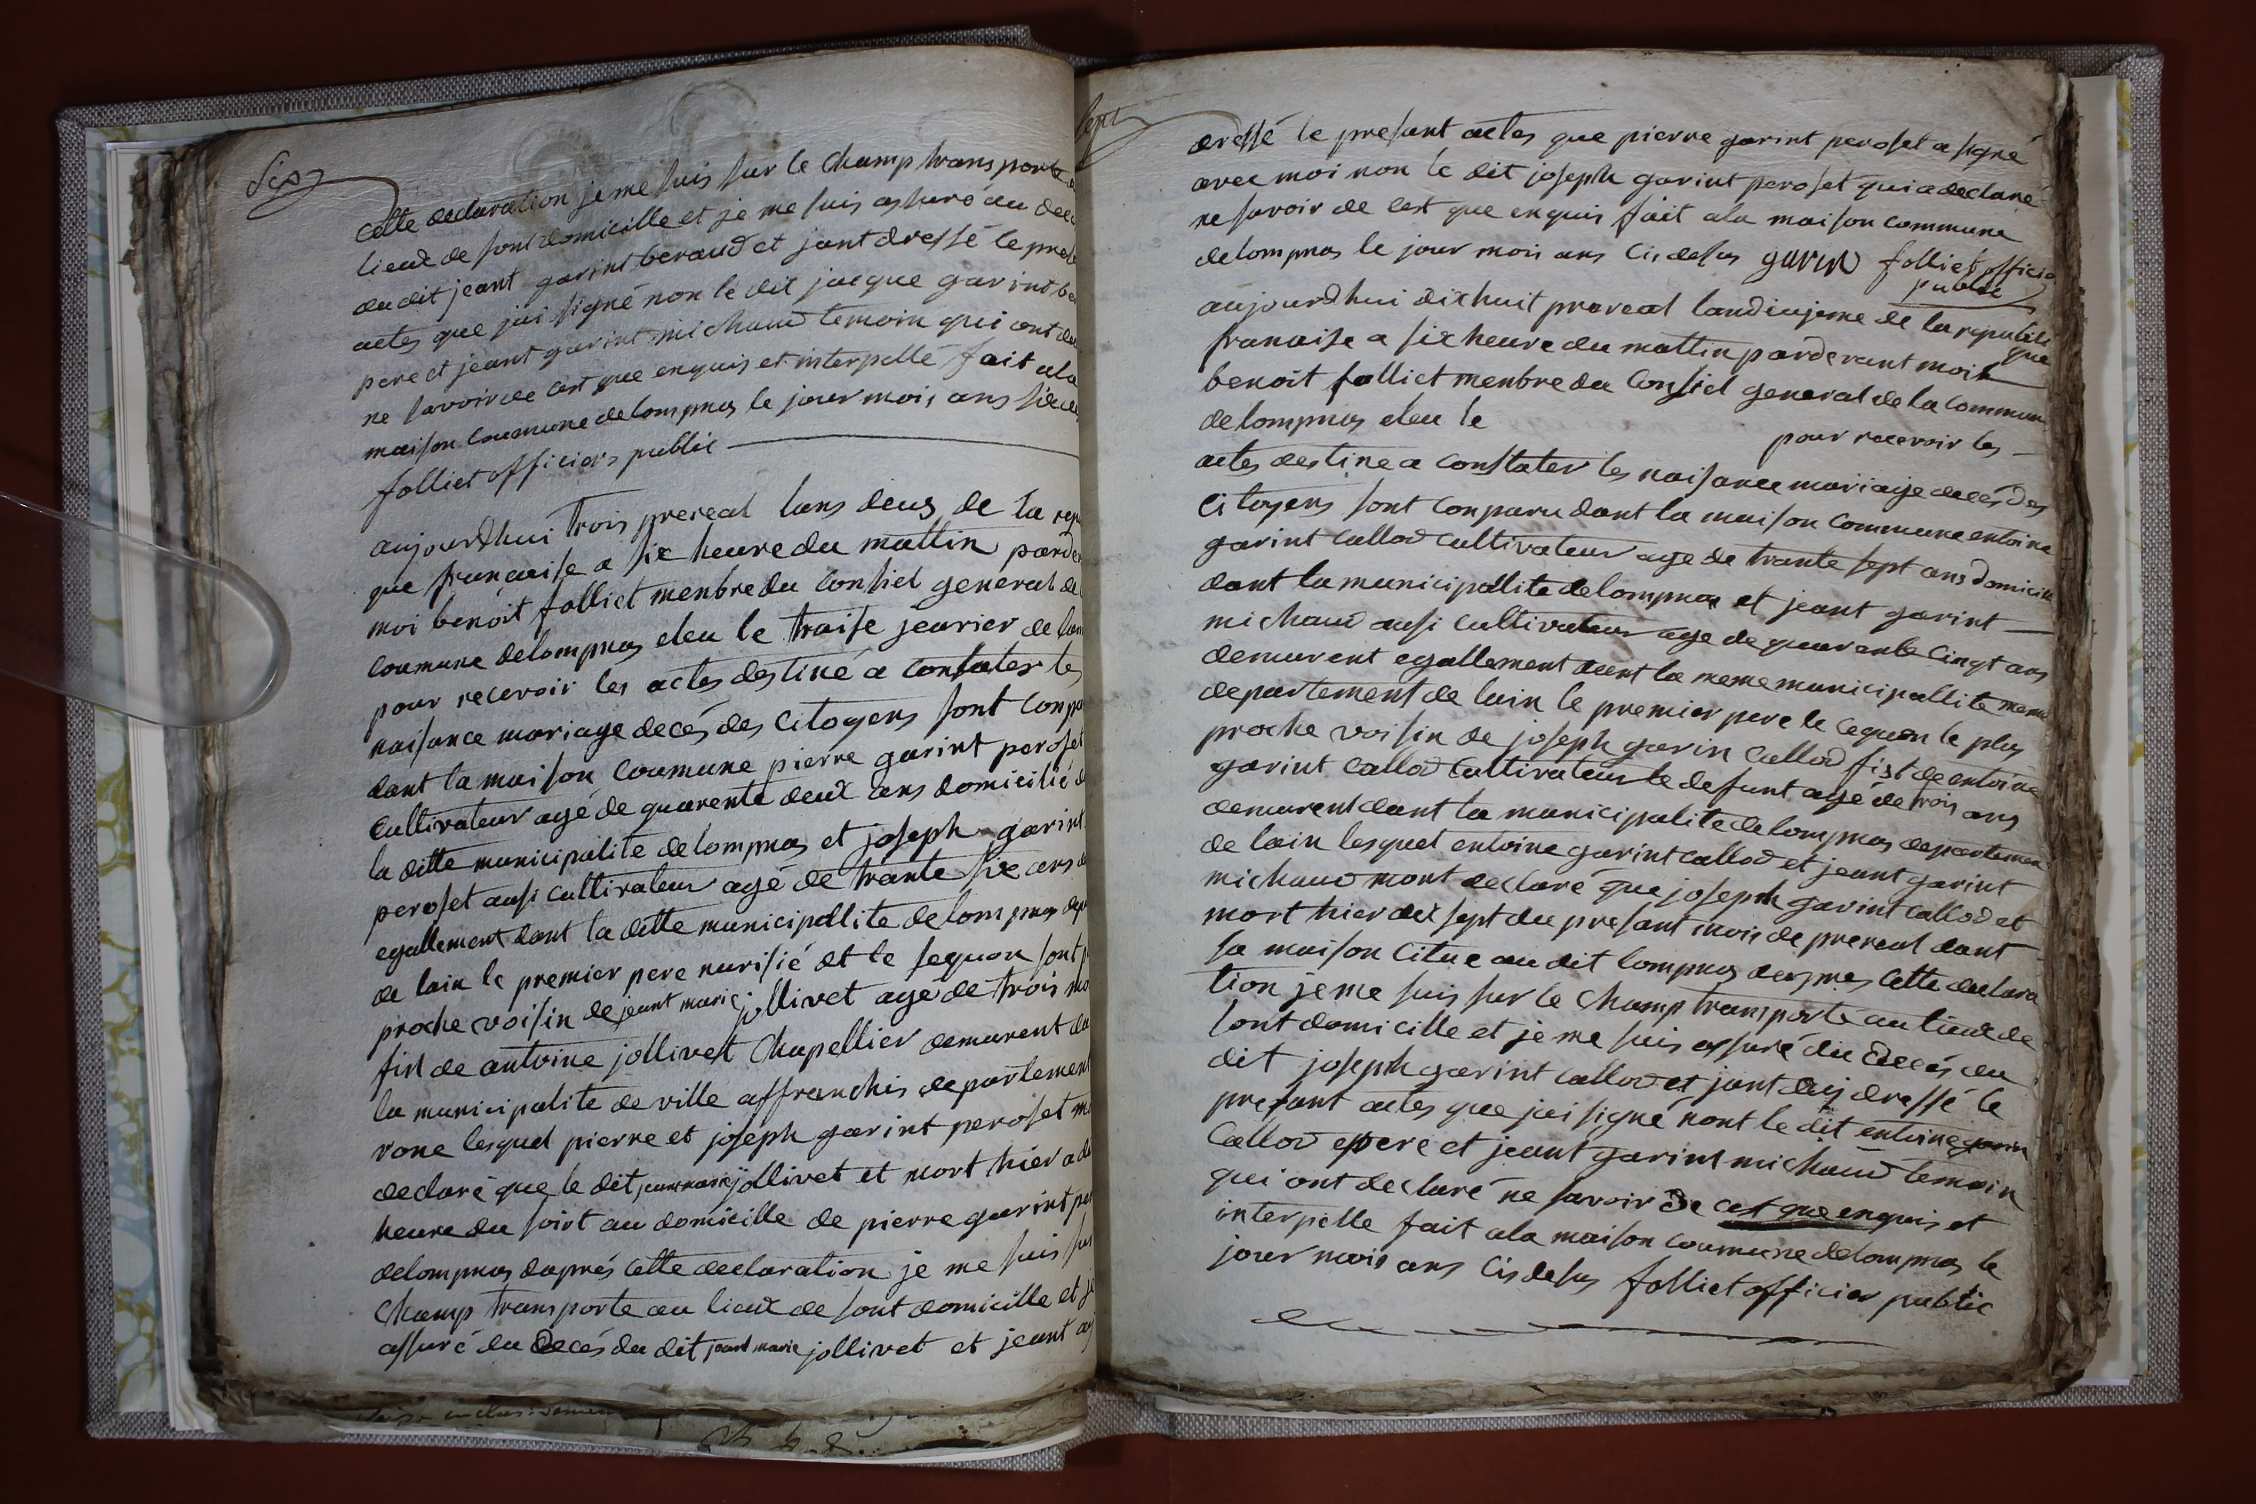 Six
cette declaration je me suis sur le champ transporté a
lieux de sont domicille et je me suis assuré du dec
du dit jeant garint beraud et jant dressé le pres
actes que jai signé non le dit jacque garint be
pere et jeant garint michaud temoin qui ont de
ne savoir de cest que enquis et interpellé fait ala
maison coumune delompnas le jour mois ans
folliet officiers public
aujourdhui trois prereal lans deus de la rep
que francaise a six heure du mattin parde
moi benoit folliet menbre du consiel general de
coumune delompnas eleu le traise jeavier de lan
pour recevoir les actes destiné a constater les
naisance mariage decés des citoyens sont conpa
dant la maison coumune pierre garint peroset
cultivateur agé de quarente deux ans domicilié d
la ditte municipalite delompnas et joseph garint
peroset ausi cultivateur agé de trante six ans d
egallement dant la ditte municipallite delompnas dep
de lain le premier pere nurisié et le sequon sont p
proche voisin de jeant marie jollivet age de trois mo
fist de antoine jollivet chapellier demurent da
la municipalite de ville affranchis departement
rone lesquel pierre et joseph garint peroset m
declaré que le dit jeant marie jollivet et mort hier a di
heure du soirt au domicille de pierre garint per
delompnas daprés cette declaration je me suis sur
champ transporte au lieux de sont domicille et je
assuré du decés du dit jeant marie jollivet et jeant
sept
dressé le presant actes que pierre garint peroset a signé
avec moi non le dit joseph garint peroset qui a declaré
ne savoir de cest que enquis fait ala maison commune
delompnas le jour mois ans cis desus garin folliet officie
public
aujourdhui dixhuit prereal landeusieme de la republi
que
franaise a six heure du mattin parderant mois
benoit folliet menbre du consiel general de la commune
delompnas eleu le pour recevoir les
actes destine a constater les naisance mariage decés des
citoyens sont conparu dant la maison commune entoine
garint callod cultivateur age de trante sept ans domicile
dant la municipallite delompnas et jeant garint
michaud ausi cultivateur age de quarente cinqt ans
demurent egallement dent la meme municipallite meme
departement de lain le premier pere le cequon le plus
proche voisin de joseph garin callod fist de entoine
garint callod cultivateur le defunt agé de trois ans
demurent dant la municipalite delompnas departemen
de lain lesquel entoine garint callod et jeant garint
michaud mont declaré que joseph garint callod et
mort hier dix sept du presant mois de prereal dant
sa maison citue au dit lompnas daspres cette declara
tion je me suis sur le champ transporté au lieux de
sont domicille et je me suis assuré du decés du
dit joseph garint callod et jant dressé le
presant actes que jai signé nont le dit entoine garin
callod pere et jeant garint michaud temoin
qui ont declaré ne savoir de cest que enquis et
interpelle fait ala maison coumune delompnas le
jour mois ans cis desus folliet officier public